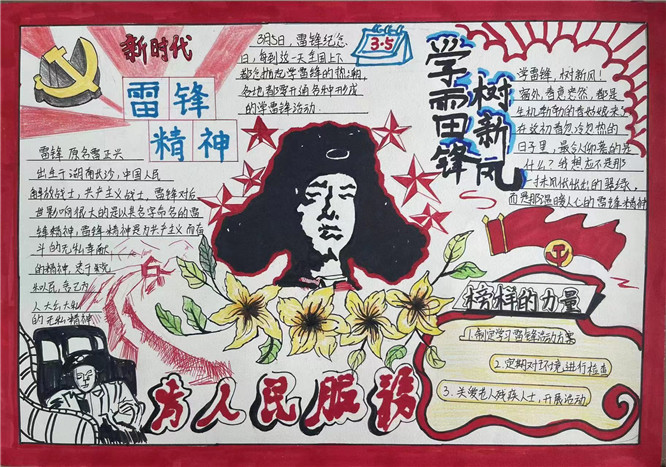 新时代
雷锋
精神
3月5日,雷锋纪念
日,每到这一天全国上下
都会掀起学雷锋的热潮,
各地都要开展各种形式
的学雷锋活动.
3.5
学雷锋
树新风
学雷锋,树新风!
窗外,春意盎然,都是
日子里,最令你难忘的是
什么?我想应不是那
而是那温暖人心的雷锋精神
雷锋 原名雷正兴
出生于湖南长沙,中国人民
解放战士,共产主义战士,雷锋对后
世影响很大的是以其名字命名的雷
锋精神,雷锋精神是为共产主义而奋
斗的无私奉献
的精神,忠于党
和人民,舍己为
人大公无私
的无私精神
榜样的力量
1.制定学习雷锋活动方案
2.定期对环境进行检查
3.关爱老人残疾人士,开展活动
为人民服务